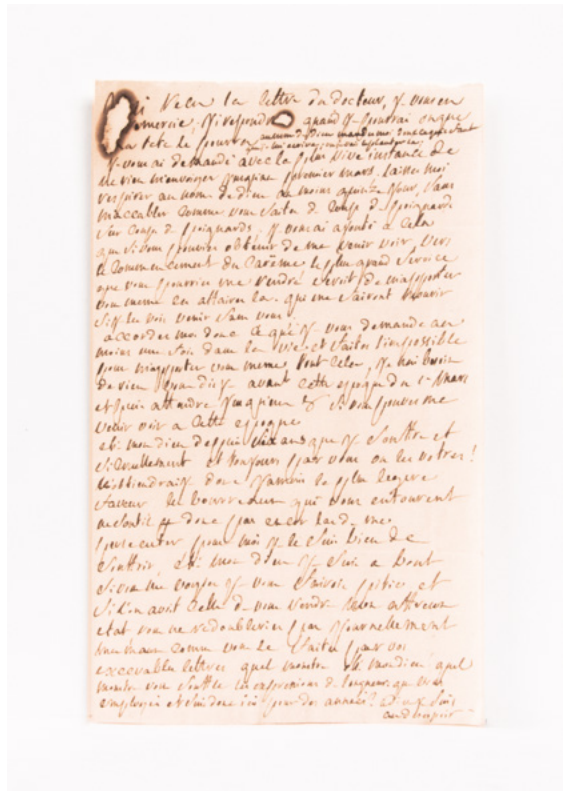 Recu la lettre du docteur, j vous en
remercie, j'i repondrai quand j pourrai ou que
la tete le pourra
j vous ai demandé avec la plus vive instance de
ne rien m'envoyer jusqu'au premier mars. laisses moi
respirer au nom de dieu au moins quinze jour, sans
m'accabler comme vous faites de coup de poignards
sur coup de poignards. j vous ai ajouté a cela
que si vous pouvies obtenir de me venir voir, vers
le commencement du Carême le plus grand service
que vous pourries me rendre seroit de m'apporter
vous meme ces affaires la. qui me fairont mourir
si j les vois venir sans vous.
accordes moi donc ce que j vous demande au
moins une fois dans la vie et faites l'impossible
pour m'apporter vous meme tout cela, j n'ai besoin
de rien avant cette epoque du 1er Mars
et puis attendre jusqu'au si vous pouves me
venir voir a cette epoque
eh! mon dieu depuis dix ans que j souffre et
si cruellement et toujours par vous ou les votres!
n'obtiendrai j donc jamais la plus legere
faveur les bourreaux qui vous entourent
ne sont ils donc pas encor las de me
persecuter pour moi j le suis bien de
souffrir, eh! mon dieu j suis a bout
si vous me voyies j vous fairois pitié et
si l'on avoit celle de vous rendre mon affreux
etat vous ne redoubleries pas journellement
mes maux comme vous le faites par vos
execrables lettres quel monstre oh mon dieu quel
monstre vous souffle les expressions de longueur que vous
employes et suis donc ici pour des années? Dieux j suis
au desespoir